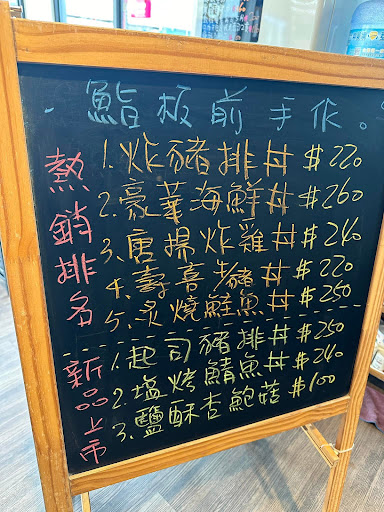 鮨板前手作。
熱銷排名
1. 炸豬排丼 $220
2. 豪華海鮮丼 $260
3. 唐揚炸雞丼 $240
4. 壽喜豬丼 $220
5. 炙燒鮭魚丼 $250
新品上市
1. 起司豬排丼 $250
2. 塩烤鯖魚丼 $240
3. 鹽酥杏鮑菇 $100